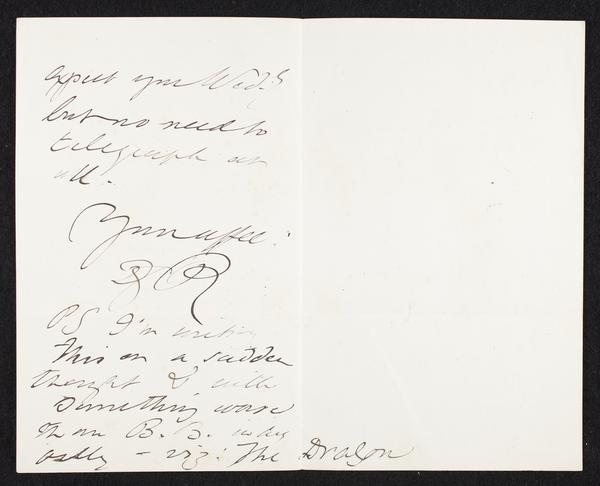 expect you Wedy
but no need to
telegraph at
all.
Your affec:
DGR
PS I'm writing
this on a sudden
thought & with
something worse
than B. B. in my
– viz: The Dragon